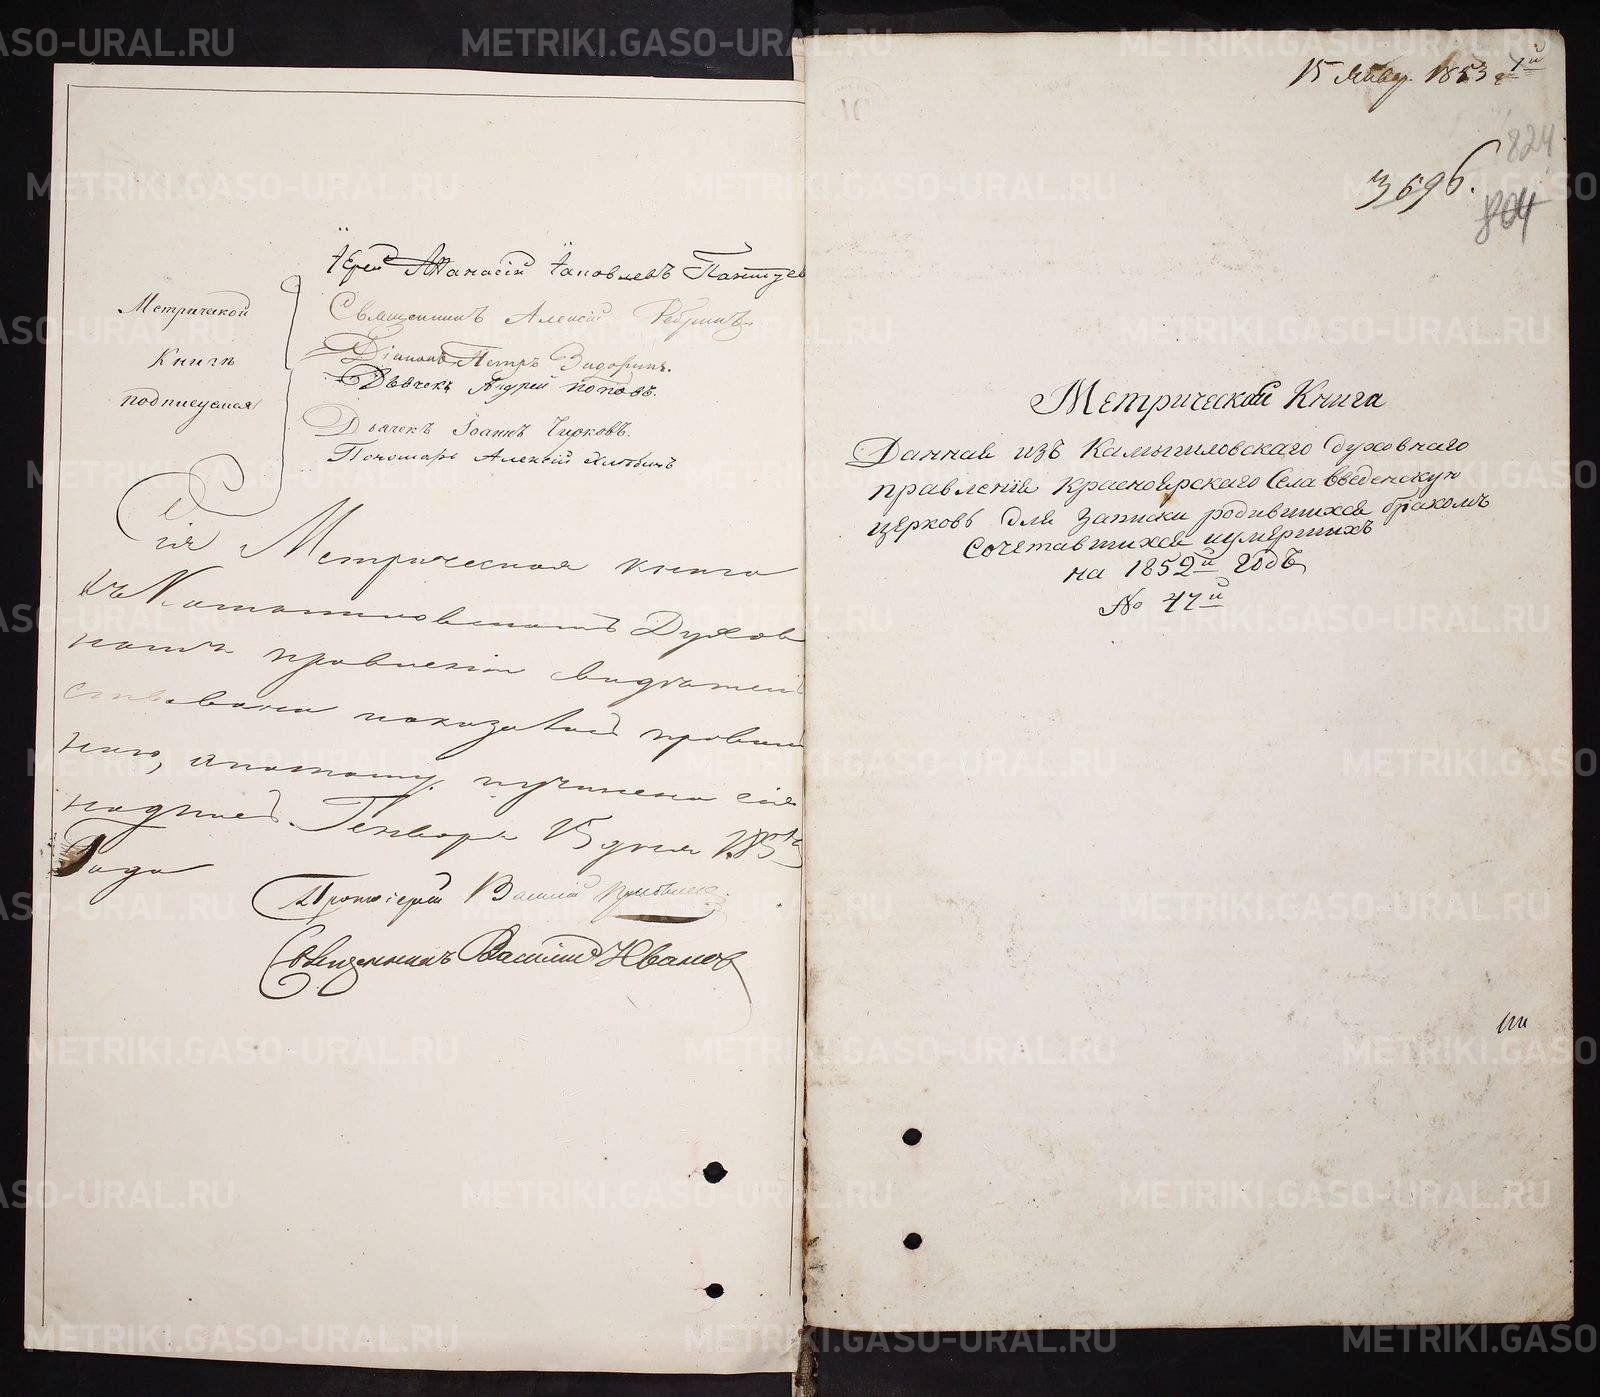 Метрической
Книгѣ
подписуемая
Іерей Аѳанасій Іаковлевъ
Священникъ Алексій
Діаконъ Петръ Задоринъ.
Дьячекъ Андрей Поповъ.
Дьячекъ Іоаннъ Чирковъ.
Пономарь Алексѣй
Сія Метрическая книга
въ Камышловскомъ Духов
номъ правленіи свидѣтель
ствована
нію, учинена сія
надпись. Генваря 15 дня 1853
Года
Протоіерей Василій
Священникъ Василій Ивановъ
15 Янвр. 1853
824
3696.
804
Метрическая Книга
Данная изъ Камышловскаго духовнаго
правленія Красноярскаго Села Введенскую
церковь для записки родившихся бракомъ
Сочетавшихся и умершихъ
на 1852й годъ
№ 47й
METRIKI.GASO-URAL.RU